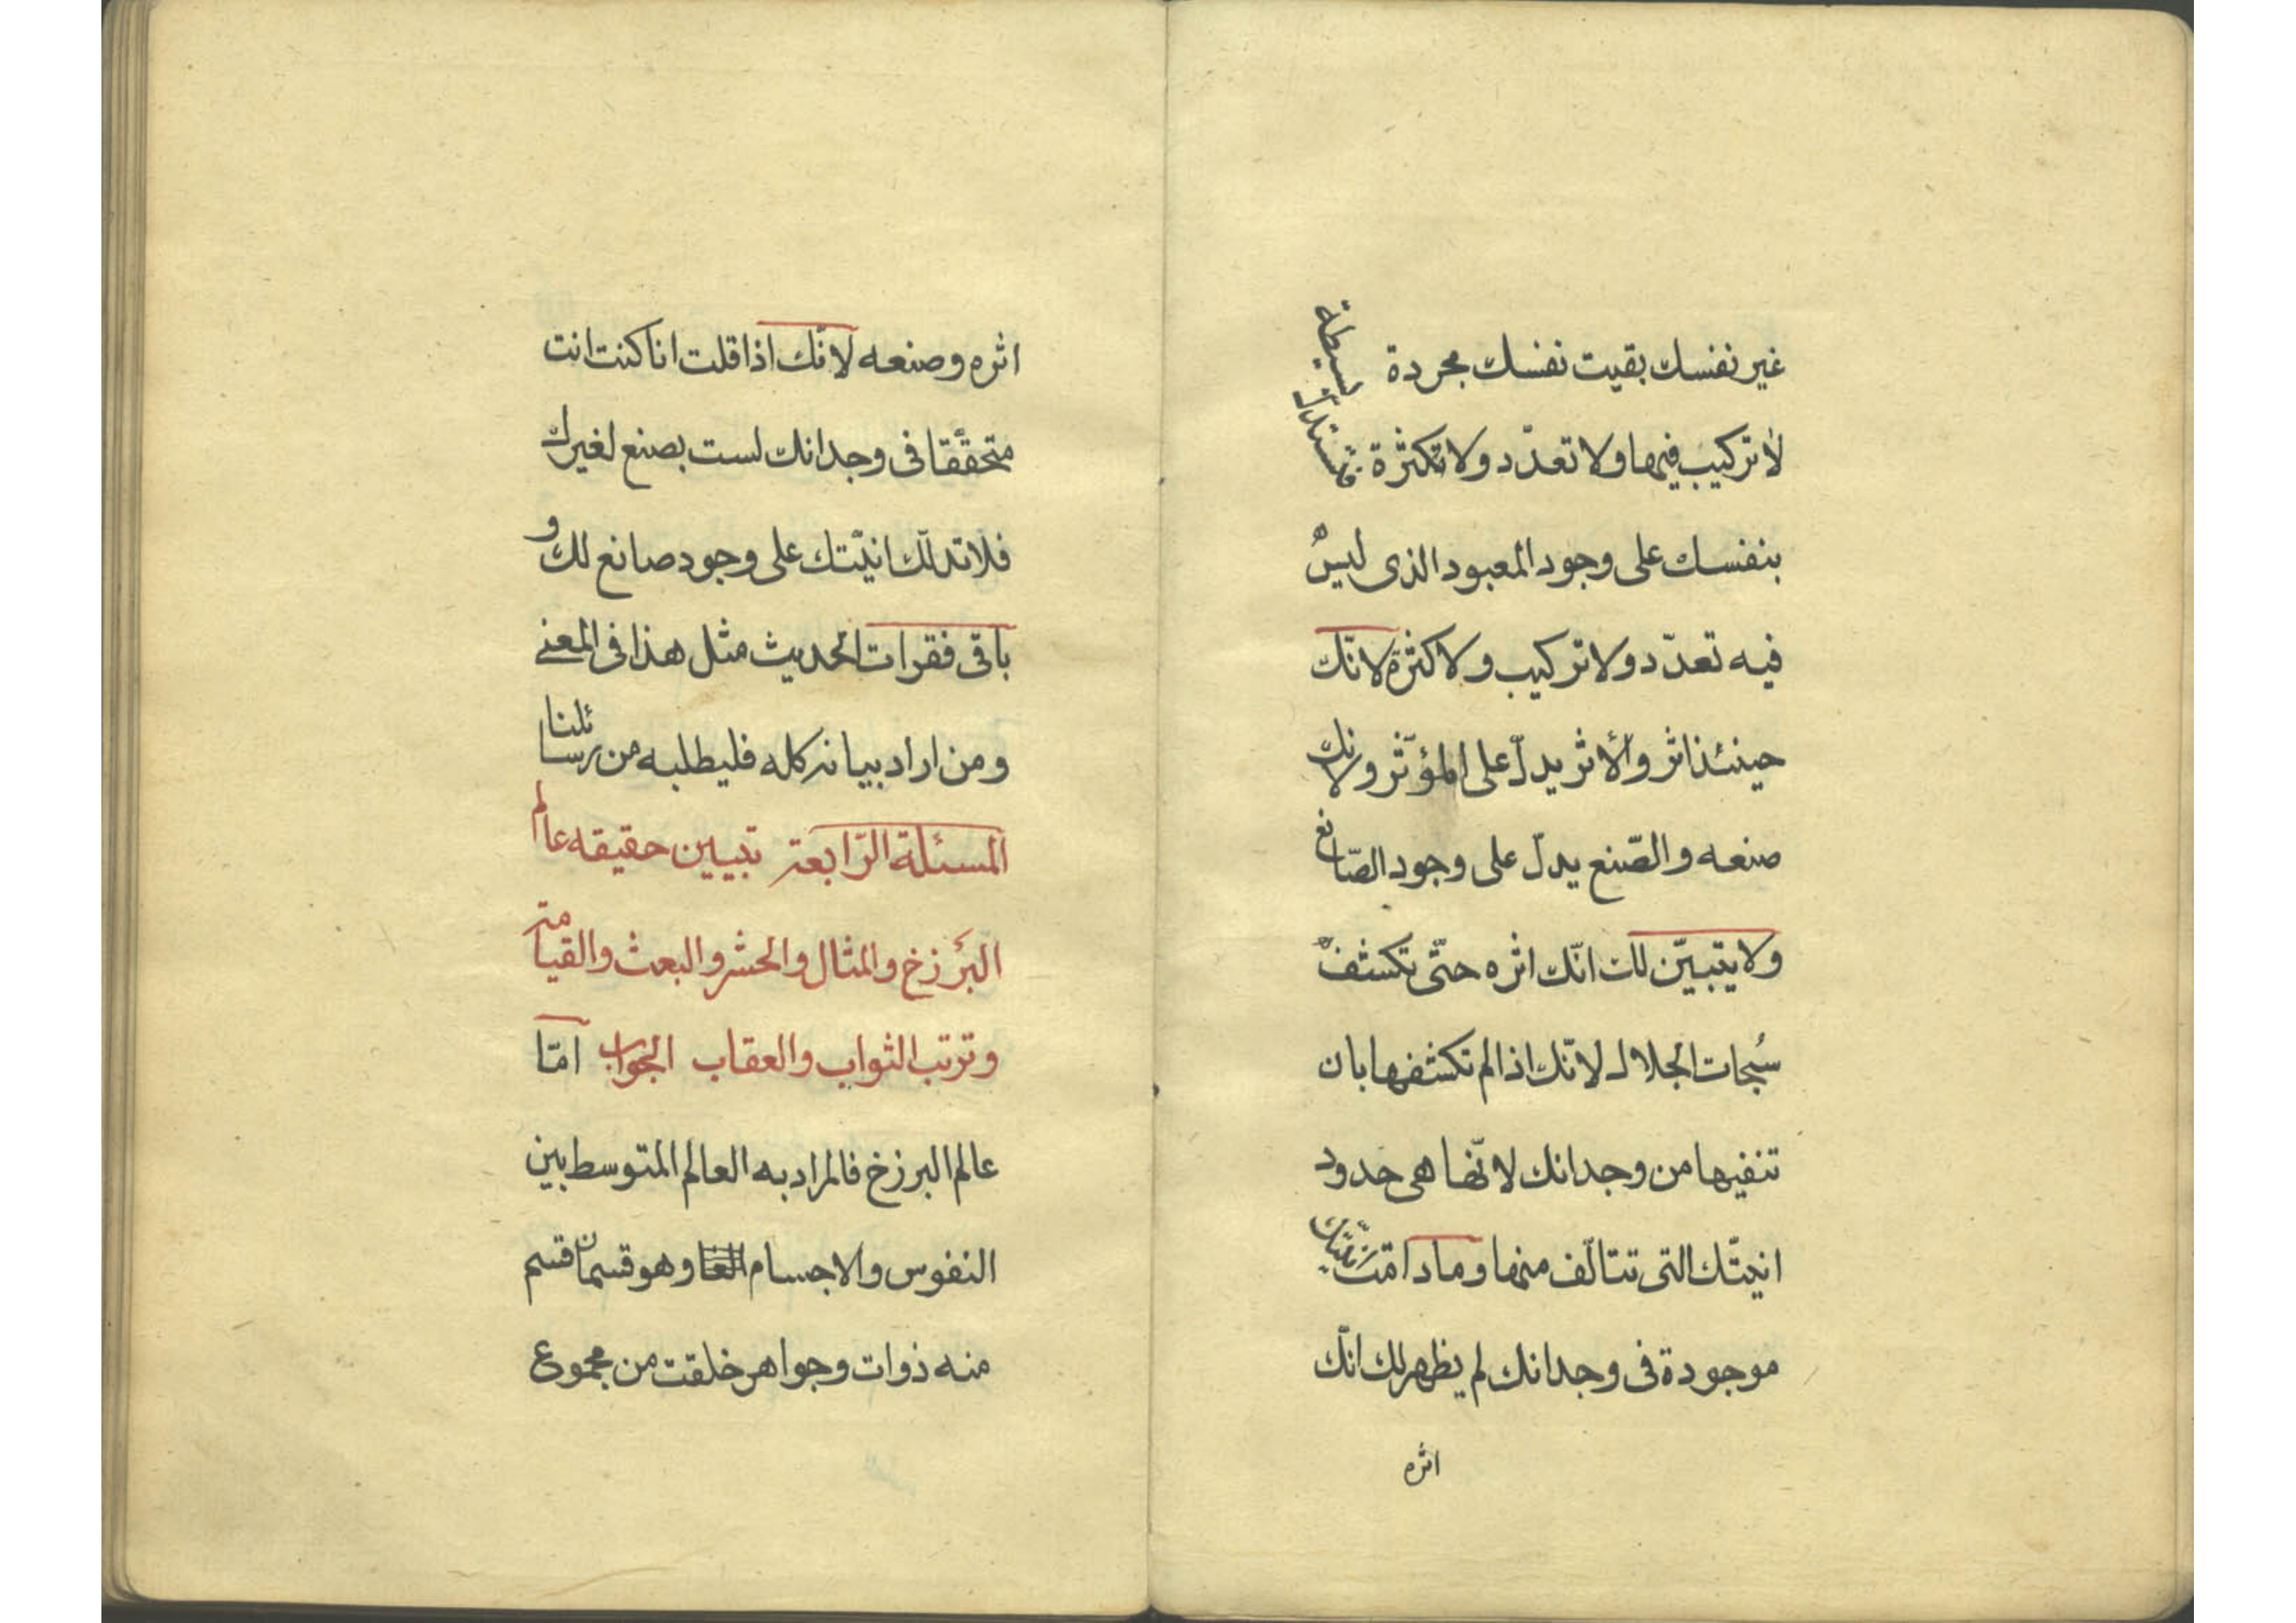 غير نفسك بقيت نفسك مجردة بسيطة
لا تركيب فيها ولا تعدّد ولا تكثرة فتستدلّ
بنفسك على وجود المعبود الذى ليس
فيه تعدّد ولا تركيب ولا كثرة لانّك
حينئذ اثر والأثر يدلّ على المؤثّر ولانك
صنعه والصّنع يدلّ على وجود الصّانع
ولا يتبيّن لك انّك اثره حتّى تكشف
سُبحات الجلال لانّك اذا لم تكشفها بان
تنفيها من وجدانك لانّها هى حدود
انيّتك التى تتالّف منها وما دامت انيّتك
موجودة فى وجدانك لم يظهر لك انّك
اثره
اثره وصنعه لانّك اذا قلت انا كنت انت
متحقّقا فى وجدانك لست بصنع لغيرك
فلا تدلّك انيّتك على وجود صانع لك و
باقى فقرات الحديث مثل هذا فى المعنى
ومن اراد بيانه كله فليطلبه من رسائلنا
المسئلة الرّابعة تبيين حقيقه عالم
البَرزخ والمثال والحشر والبعث والقيامة
وترتب الثواب والعقاب الجواب امّا
عالم البرزخ فالمراد به العالم المتوسط بين
النفوس والاجسام وهو قسمان قسم
منه ذوات وجواهر خلقت من مجموع